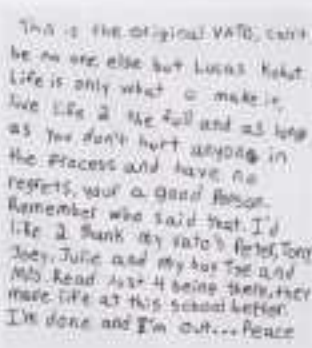 This is the original VATO, can't
be no one else but Lucas
Life is only what u make it,
live life 2 the full and as long
as you don't hurt anyone in
the process and have no
regrets, your a good person.
Remember who said that. I'd
like 2 thank my vato's Peter, Tony
Joey, Julie and my boy Joe and
Ms. Read just 4 being there, they
made life at this school better.
I'm done and I'm out... Peace